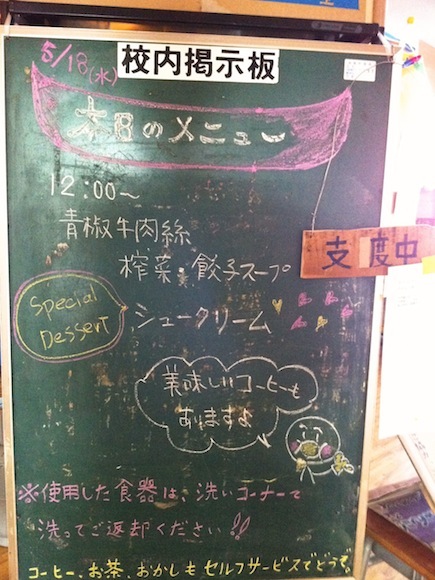 校内掲示板
5/18(水)
本日のメニュー
12:00～
青椒牛肉絲
榨菜・餃子スープ
支度中
Special
Dessert
シュークリーム
美味しいコーヒーも
ありますよ
※使用した食器は、洗いコーナーで
洗ってご返却ください!!
コーヒー、お茶、おかしもセルフサービスでどうぞ。